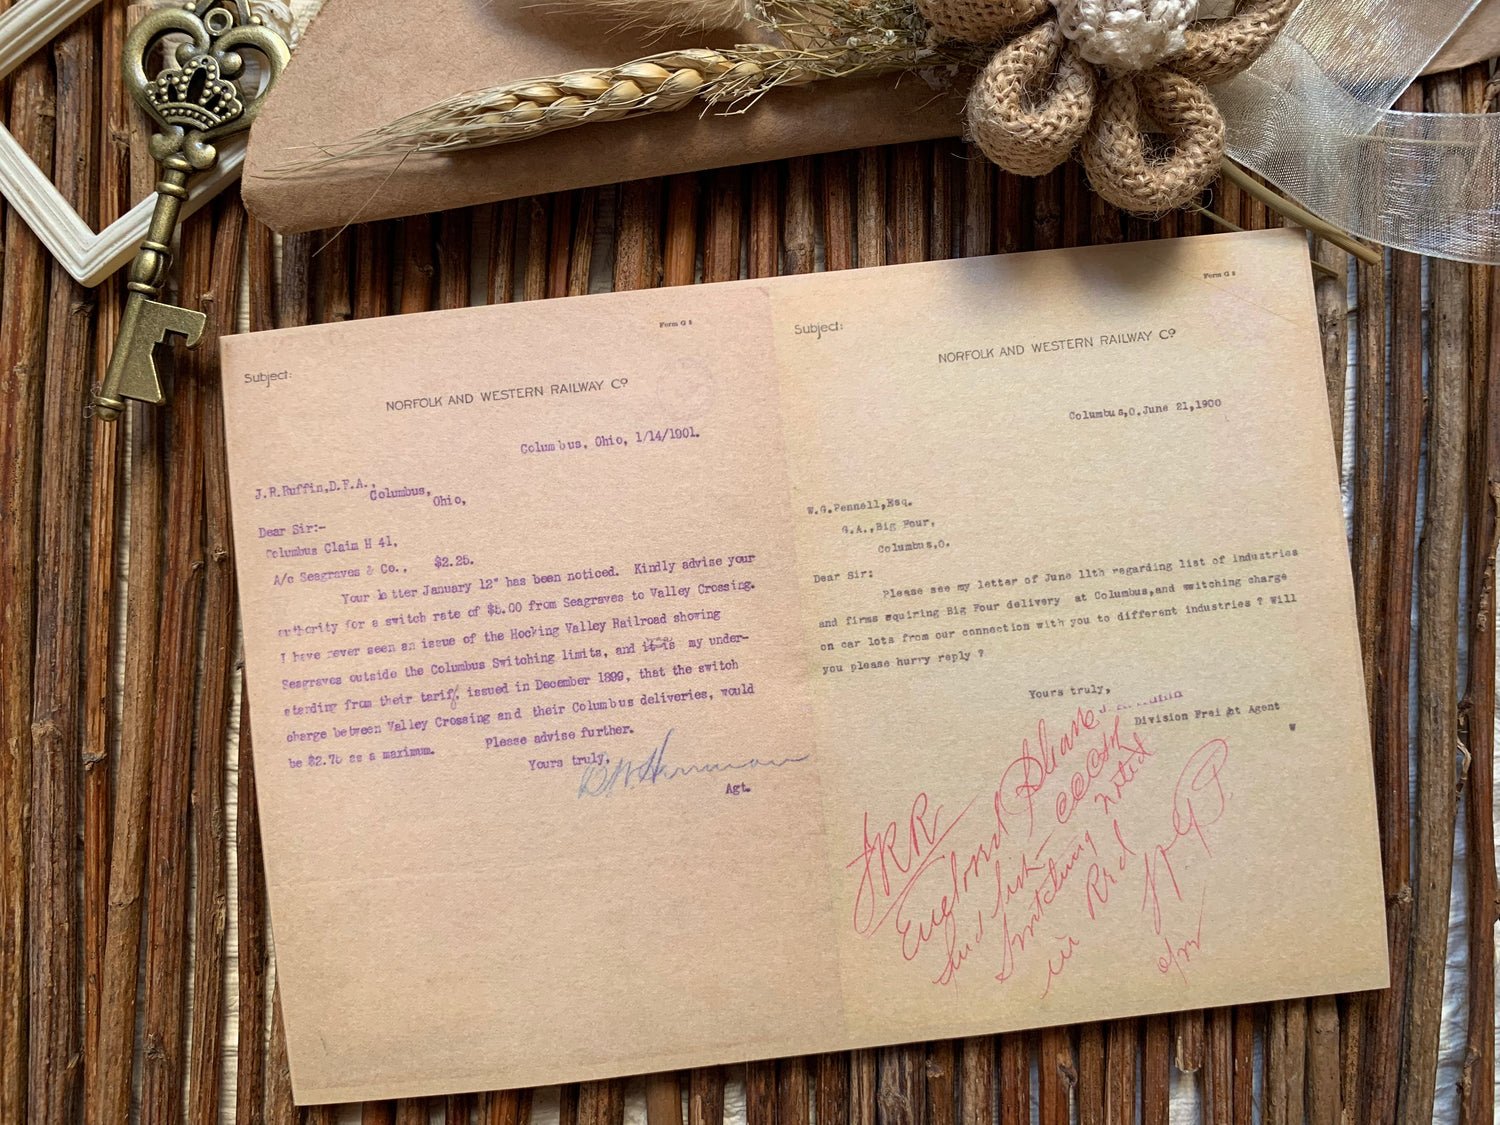 Form G 8
Subject:
NORFOLK AND WESTERN RAILWAY Cº
Columbus, Ohio, 1/14/1901.
J.R.Ruffin,D.F.A.,
Columbus,
Ohio,
Dear Sir:-
Columbus Claim H 41,
A/c Seagraves & Co., $2.25.
Your letter January 12" has been noticed. Kindly advise your
authority for a switch rate of $5.00 from Seagraves to Valley Crossing.
I have never seen an issue of the Hocking Valley Railroad showing
Seagraves outside the Columbus Switching limits, and it is my under-
standing from their tariff, issued in December 1899, that the switch
charge between Valley Crossing and their Columbus deliveries, would
be $2.75 as a maximum. Please advise further.
Yours truly,
Agt.
Form G 8
Subject:
NORFOLK AND WESTERN RAILWAY Cº
Columbus,O.June 21,1900
W.G.Pennell,Esq.
G.A.,Big Four,
Columbus,O.
Dear Sir:
Please see my letter of June 11th regarding list of industries
and firms equiring Big Four delivery at Columbus,and switching charge
on car lots from our connection with you to different industries ? Will
you please hurry reply ?
Yours truly,
J. R. Ruffin
Division Freight Agent
W
JRR
Please
find list
Switching noted
in Red
W.G.P.